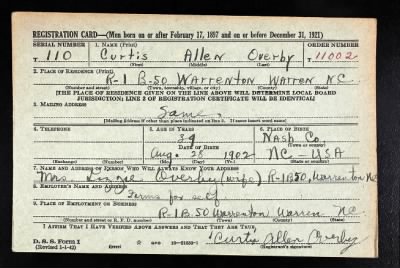 REGISTRATION CARD—(Men born on or after February 17, 1897 and on or before December 31, 1921)
SERIAL NUMBER 1. NAME (Print) ORDER NUMBER
T 110 Curtis Allen Overby 11002
(First) (Middle) (Last)
2. PLACE OF RESIDENCE (Print)
R-1 B-50 WARRENTON WARREN NC
(Number and street) (Town, township, village, or city) (County) (State)
[THE PLACE OF RESIDENCE GIVEN ON THE LINE ABOVE WILL DETERMINE LOCAL BOARD
JURISDICTION; LINE 2 OF REGISTRATION CERTIFICATE WILL BE IDENTICAL]
3. MAILING ADDRESS
Same
[Mailing address if other than place indicated on line 2. If same insert word same]
4. TELEPHONE 5. AGE IN YEARS 6. PLACE OF BIRTH
39 Nash Co.
DATE OF BIRTH (Town or county)
Aug. 28 1902 NC USA
(Exchange) (Number) (Mo.) (Day) (Yr.) (State or country)
7. NAME AND ADDRESS OF PERSON WHO WILL ALWAYS KNOW YOUR ADDRESS
Mrs. Overby (wife) R-1 B50, Warrenton NC
8. EMPLOYER'S NAME AND ADDRESS
Farms for self
9. PLACE OF EMPLOYMENT OR BUSINESS
R-1 B-50 Warrenton Warren NC
(Number and street or R. F. D. number) (Town) (County) (State)
I AFFIRM THAT I HAVE VERIFIED ABOVE ANSWERS AND THAT THEY ARE TRUE.
D. S. S. Form 1 Curtis Allen Overby
(Revised 1-1-42) (over) 16-21630-1 (Registrant's signature)